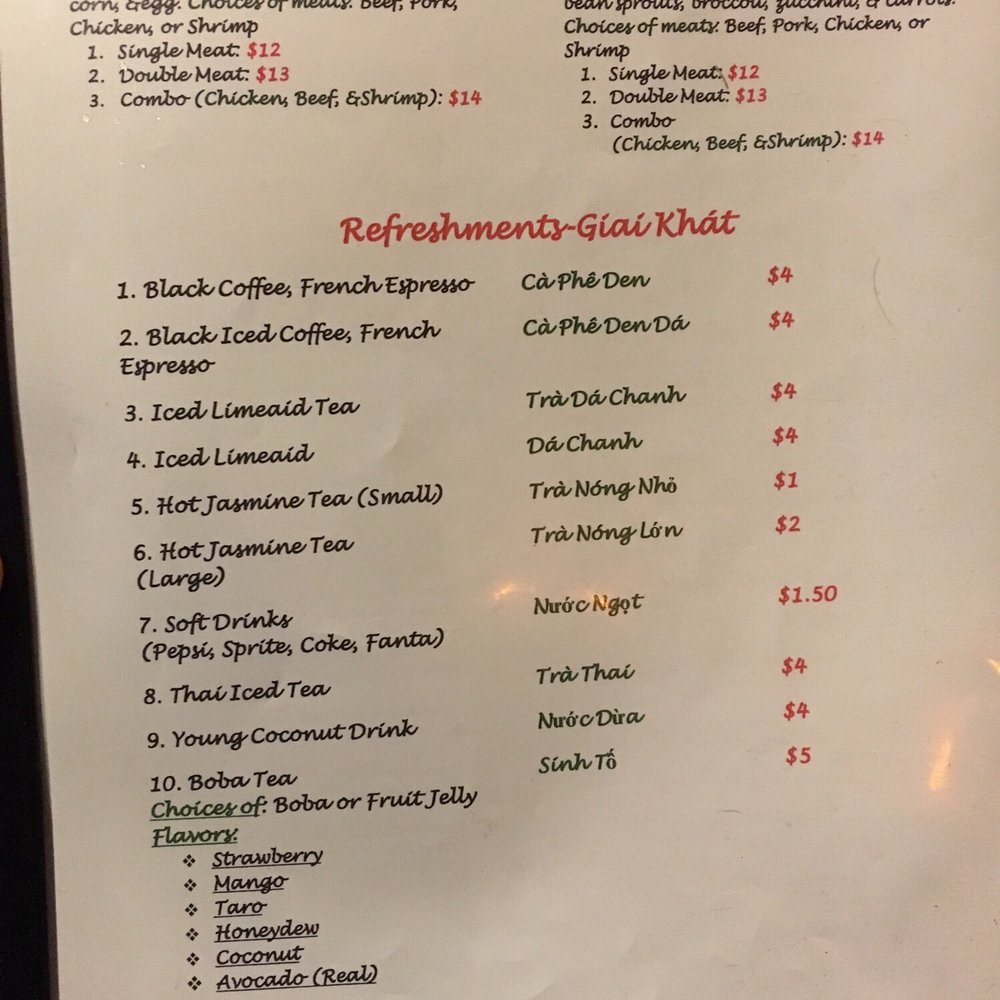 corn, &egg. Choices of meats: Beef, Pork,
Chicken, or Shrimp
1. Single Meat: $12
2. Double Meat: $13
3. Combo (Chicken, Beef, &Shrimp): $14
bean sprouts, broccoli, zucchini, & carrots.
Choices of meats: Beef, Pork, Chicken, or
Shrimp
1. Single Meat: $12
2. Double Meat: $13
3. Combo
(Chicken, Beef, &Shrimp): $14
Refreshments-Giai Khát
1. Black Coffee, French Espresso Cà Phê Den $4
2. Black Iced Coffee, French Cà Phê Den Dá $4
Espresso
3. Iced Limeaid Tea Trà Dá Chanh $4
4. Iced Limeaid Dá Chanh $4
5. Hot Jasmine Tea (Small) Trà Nóng Nhỏ $1
6. Hot Jasmine Tea Trà Nóng Lớn $2
(Large)
7. Soft Drinks Nước Ngọt $1.50
(Pepsi, Sprite, Coke, Fanta)
8. Thai Iced Tea Trà Thai $4
9. Young Coconut Drink Nước Dừa $4
10. Boba Tea Sính Tố $5
Choices of: Boba or Fruit Jelly
Flavors:
❖ Strawberry
❖ Mango
❖ Taro
❖ Honeydew
❖ Coconut
❖ Avocado (Real)